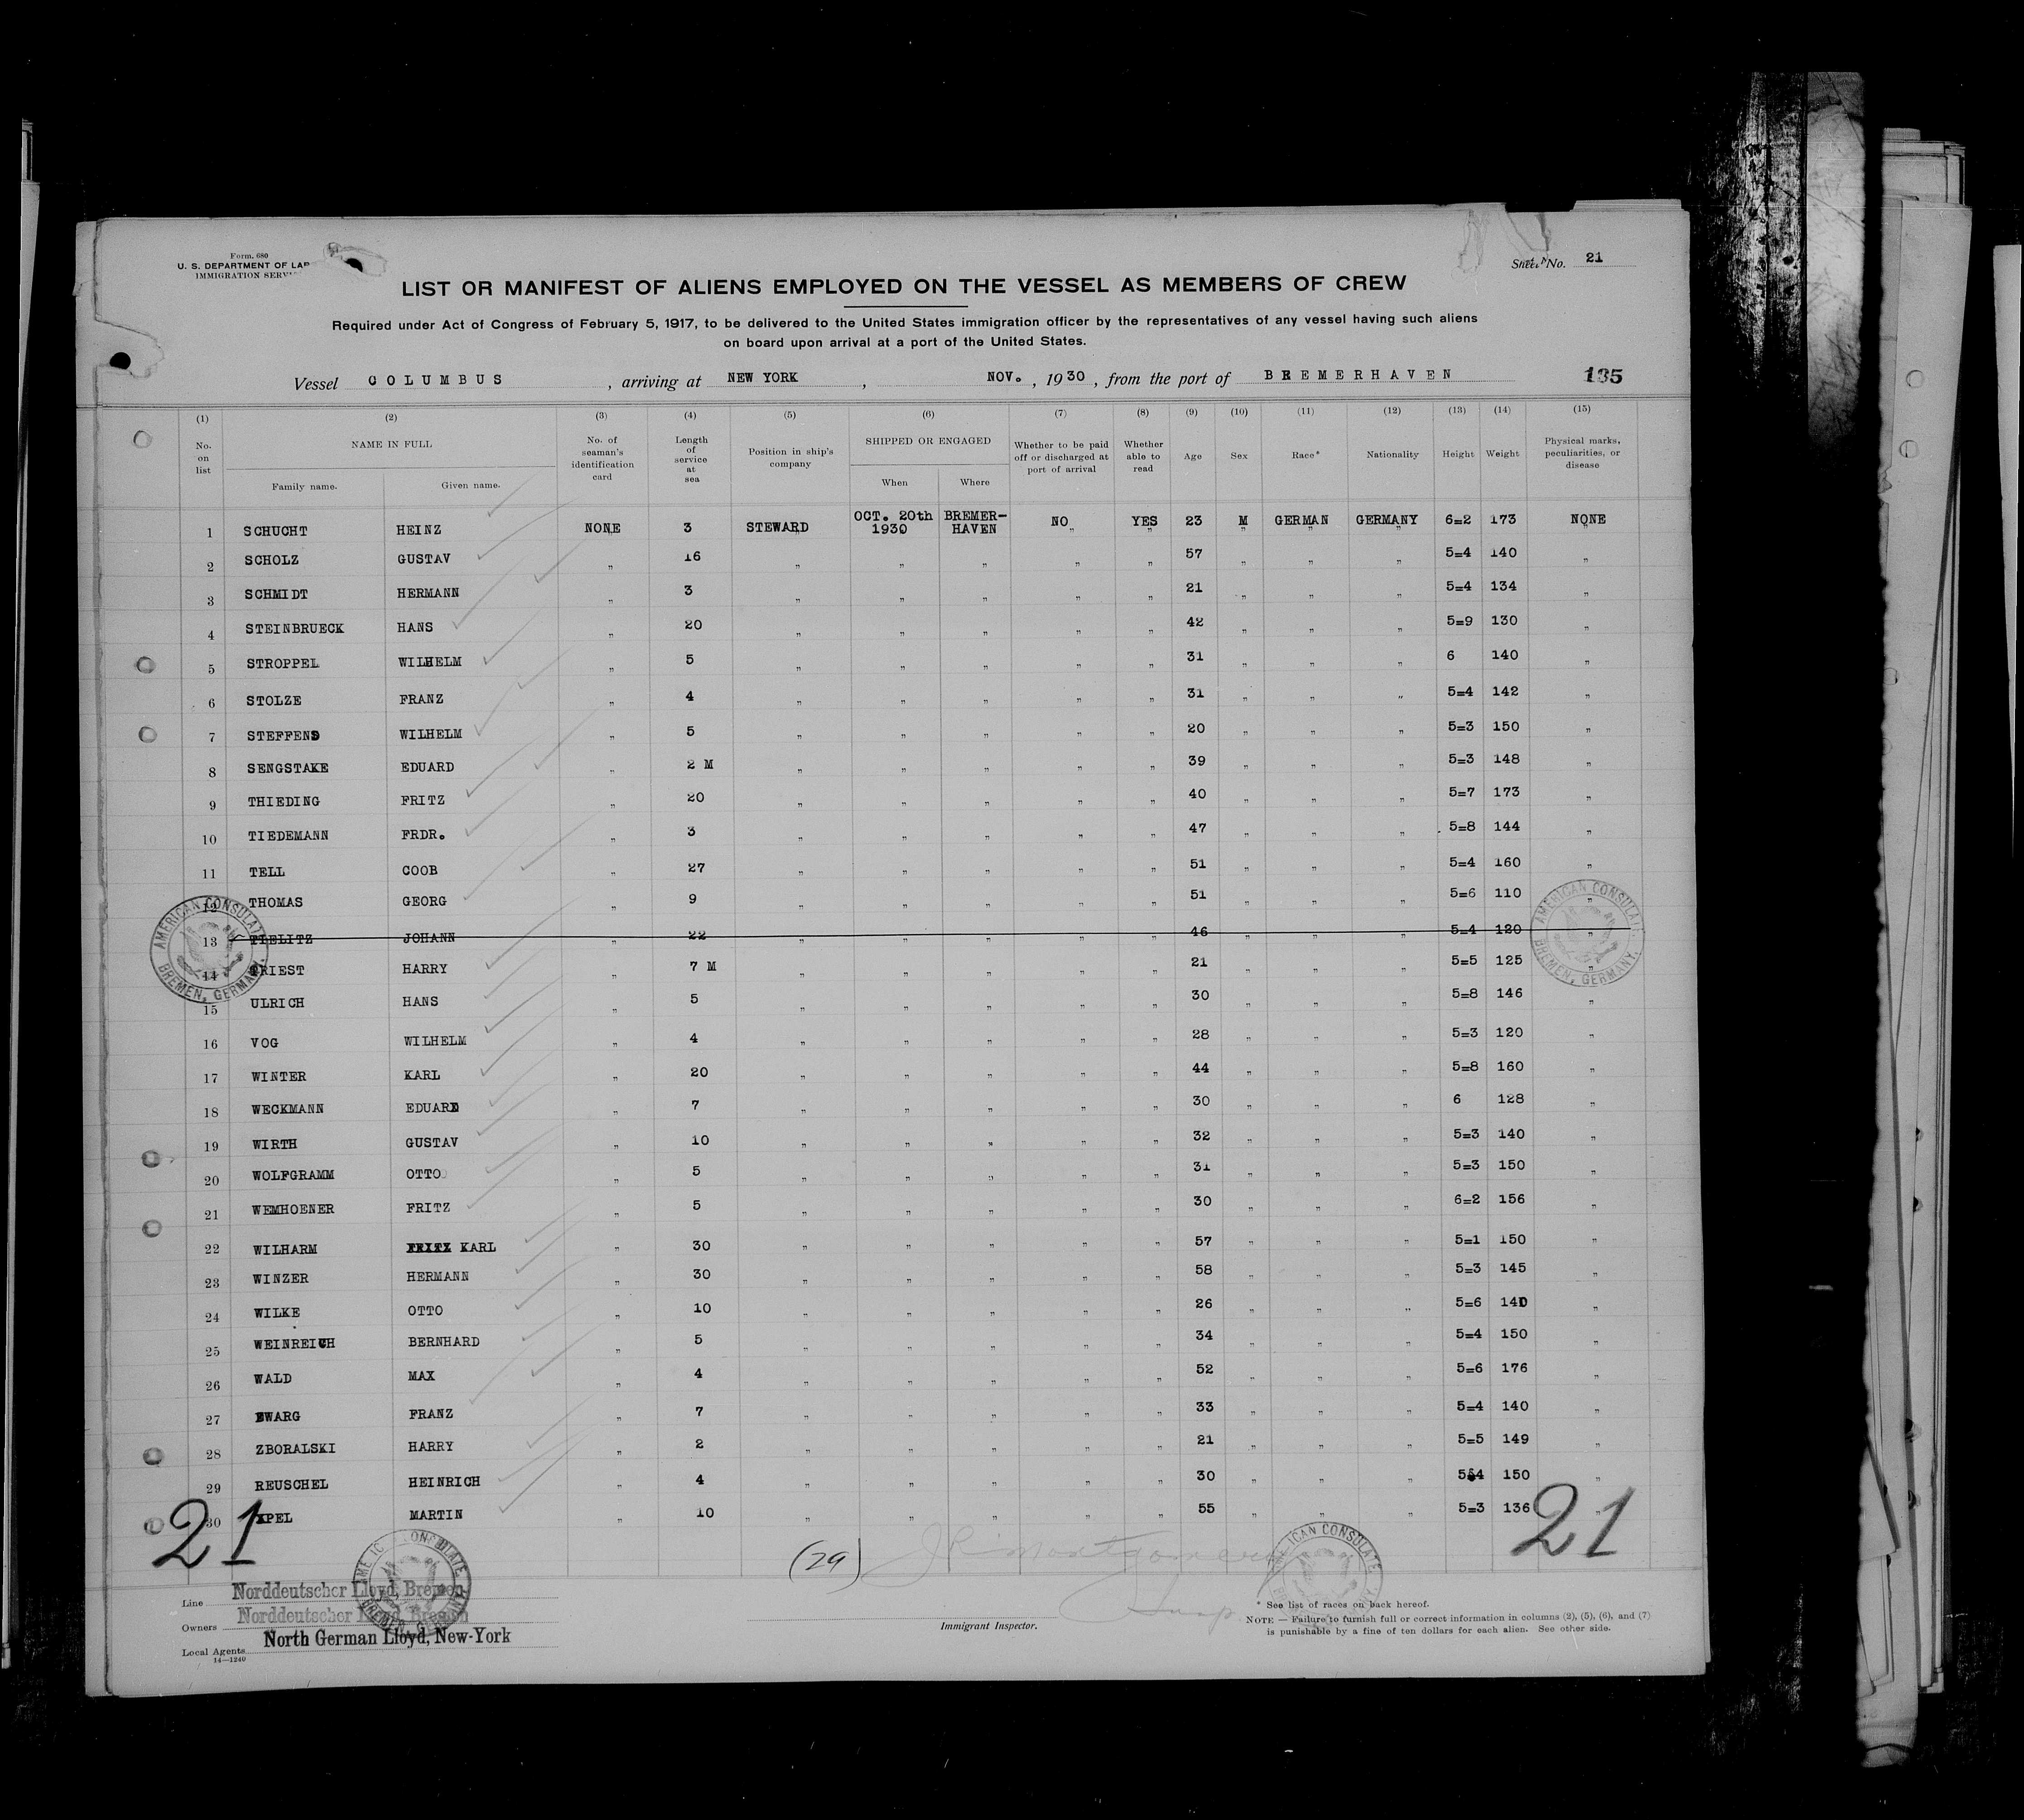 Form. 680
U. S. DEPARTMENT OF LAB
IMMIGRATION SERVI
Sheet No. 21
LIST OR MANIFEST OF ALIENS EMPLOYED ON THE VESSEL AS MEMBERS OF CREW
Required under Act of Congress of February 5, 1917, to be delivered to the United States immigration officer by the representatives of any vessel having such aliens
on board upon arrival at a port of the United States.
Vessel COLUMBUS, arriving at NEW YORK, NOV., 1930, from the port of BREMERHAVEN 135
(1) (2) (3) (4) (5) (6) (7) (8) (9) (10) (11) (12) (13) (14) (15)
No. on list NAME IN FULL Family name. Given name. No. of seaman's identification card Length of service at sea Position in ship's company SHIPPED OR ENGAGED When Where Whether to be paid off or discharged at port of arrival Whether able to read Age Sex Race* Nationality Height Weight Physical marks, peculiarities, or disease
1 SCHUCHT HEINZ NONE 3 STEWARD OCT. 20th 1930 BREMER-HAVEN NO YES 23 M GERMAN GERMANY 6=2 173 NONE
2 SCHOLZ GUSTAV " 16 " " " " " 57 " " " 5=4 140 "
3 SCHMIDT HERMANN " 3 " " " " " 21 " " " 5=4 134 "
4 STEINBRUECK HANS " 20 " " " " " 42 " " " 5=9 130 "
5 STROPPEL WILHELM " 5 " " " " " 31 " " " 6 140 "
6 STOLZE FRANZ " 4 " " " " " 31 " " " 5=4 142 "
7 STEFFENS WILHELM " 5 " " " " " 20 " " " 5=3 150 "
8 SENGSTAKE EDUARD " 2 M " " " " " 39 " " " 5=3 148 "
9 THIEDING FRITZ " 20 " " " " " 40 " " " 5=7 173 "
10 TIEDEMANN FRDR. " 3 " " " " " 47 " " " 5=8 144 "
11 TELL COOB " 27 " " " " " 51 " " " 5=4 160 "
12 THOMAS GEORG " 9 " " " " " 51 " " " 5=6 110 "
13 TIELITZ JOHANN " 22 " " " " " 46 " " " 5=4 120 "
14 TRIEST HARRY " 7 M " " " " " 21 " " " 5=5 125 "
15 ULRICH HANS " 5 " " " " " 30 " " " 5=8 146 "
16 VOG WILHELM " 4 " " " " " 28 " " " 5=3 120 "
17 WINTER KARL " 20 " " " " " 44 " " " 5=8 160 "
18 WECKMANN EDUARD " 7 " " " " " 30 " " " 6 128 "
19 WIRTH GUSTAV " 10 " " " " " 32 " " " 5=3 140 "
20 WOLFGRAMM OTTO " 5 " " " " " 31 " " " 5=3 150 "
21 WEMHOENER FRITZ " 5 " " " " " 30 " " " 6=2 156 "
22 WILHARM FRITZ KARL " 30 " " " " " 57 " " " 5=1 150 "
23 WINZER HERMANN " 30 " " " " " 58 " " " 5=3 145 "
24 WILKE OTTO " 10 " " " " " 26 " " " 5=6 140 "
25 WEINREICH BERNHARD " 5 " " " " " 34 " " " 5=4 150 "
26 WALD MAX " 4 " " " " " 52 " " " 5=6 176 "
27 ZWARG FRANZ " 7 " " " " " 33 " " " 5=4 140 "
28 ZBORALSKI HARRY " 2 " " " " " 21 " " " 5=5 149 "
29 REUSCHEL HEINRICH " 4 " " " " " 30 " " " 5=4 150 "
30 APEL MARTIN " 10 " " " " " 55 " " " 5=3 136
AMERICAN CONSULATE BREMEN, GERMANY.
AMERICAN CONSULATE BREMEN, GERMANY.
21 (29) J R Montgomery 21
AMERICAN CONSULATE BREMEN, GERMANY
AMERICAN CONSULATE
Line Norddeutscher Lloyd, Bremen
Owners Norddeutscher Lloyd, Bremen
Local Agents North German Lloyd, New-York
14—1240
Immigrant Inspector.
* See list of races on back hereof.
NOTE — Failure to furnish full or correct information in columns (2), (5), (6), and (7)
is punishable by a fine of ten dollars for each alien. See other side.